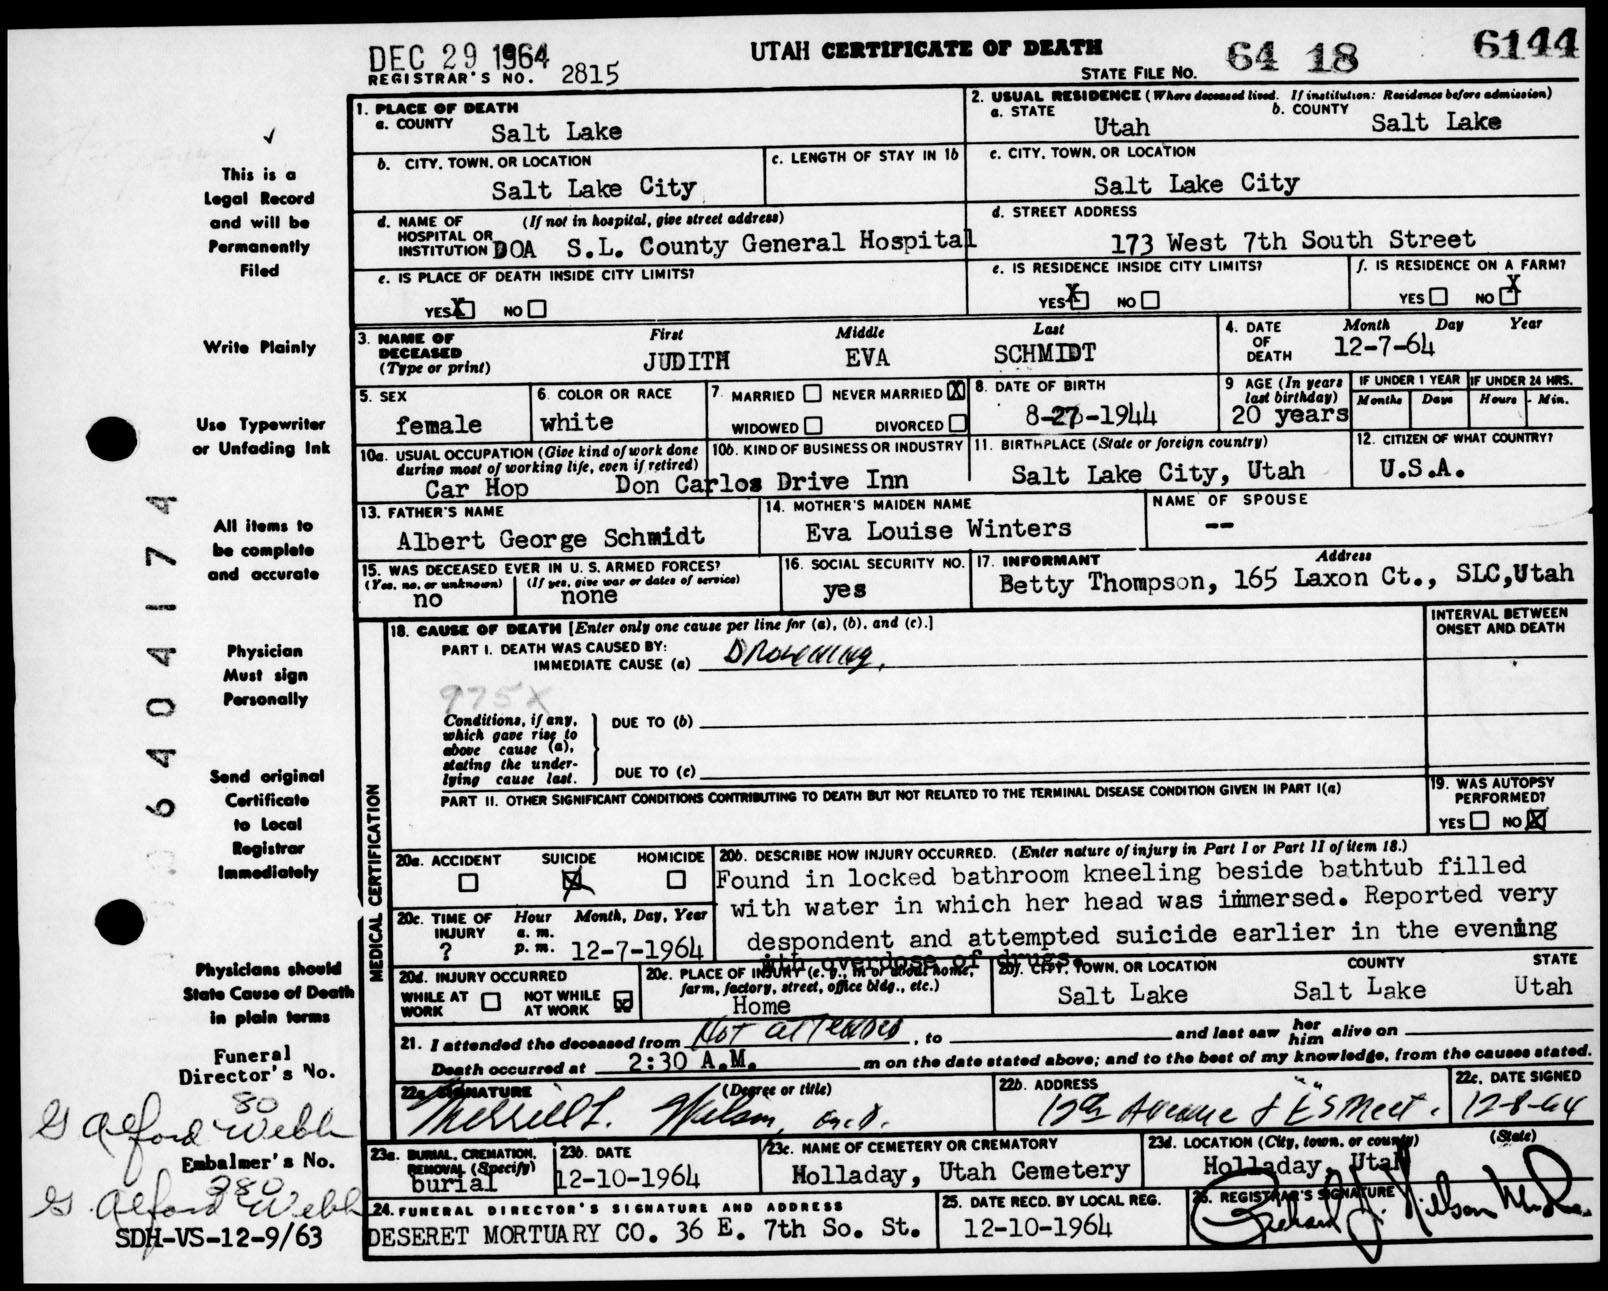 DEC 29 1964
UTAH CERTIFICATE OF DEATH
64 18 6144
REGISTRAR'S NO. 2815
STATE FILE NO.
1. PLACE OF DEATH
a. COUNTY Salt Lake
2. USUAL RESIDENCE (Where deceased lived. If institution: Residence before admission)
a. STATE Utah b. COUNTY Salt Lake
b. CITY, TOWN, OR LOCATION Salt Lake City
c. LENGTH OF STAY IN 1b
c. CITY, TOWN, OR LOCATION Salt Lake City
d. NAME OF HOSPITAL OR INSTITUTION (If not in hospital, give street address)
DOA S.L. County General Hospital
d. STREET ADDRESS
173 West 7th South Street
e. IS PLACE OF DEATH INSIDE CITY LIMITS?
YES X NO
e. IS RESIDENCE INSIDE CITY LIMITS?
YES X NO
f. IS RESIDENCE ON A FARM?
YES NO X
3. NAME OF DECEASED (Type or print)
First Middle Last
JUDITH EVA SCHMIDT
4. DATE OF DEATH
Month Day Year
12-7-64
5. SEX
female
6. COLOR OR RACE
white
7. MARRIED NEVER MARRIED X
WIDOWED DIVORCED
8. DATE OF BIRTH
8-27-1944
9 AGE (In years last birthday)
20 years
IF UNDER 1 YEAR
Months Days
IF UNDER 24 HRS.
Hours Min.
10a. USUAL OCCUPATION (Give kind of work done during most of working life, even if retired)
Car Hop
10b. KIND OF BUSINESS OR INDUSTRY
Don Carlos Drive Inn
11. BIRTHPLACE (State or foreign country)
Salt Lake City, Utah
12. CITIZEN OF WHAT COUNTRY?
U.S.A.
13. FATHER'S NAME
Albert George Schmidt
14. MOTHER'S MAIDEN NAME
Eva Louise Winters
NAME OF SPOUSE
--
15. WAS DECEASED EVER IN U. S. ARMED FORCES?
(Yes, no, or unknown) (If yes, give war or dates of service)
no none
16. SOCIAL SECURITY NO.
yes
17. INFORMANT Address
Betty Thompson, 165 Laxon Ct., SLC, Utah
18. CAUSE OF DEATH [Enter only one cause per line for (a), (b), and (c).]
INTERVAL BETWEEN ONSET AND DEATH
PART I. DEATH WAS CAUSED BY:
IMMEDIATE CAUSE (a) Drowning.
975X
Conditions, if any, which gave rise to above cause (a), stating the underlying cause last.
DUE TO (b)
DUE TO (c)
PART II. OTHER SIGNIFICANT CONDITIONS CONTRIBUTING TO DEATH BUT NOT RELATED TO THE TERMINAL DISEASE CONDITION GIVEN IN PART I(a)
19. WAS AUTOPSY PERFORMED?
YES NO X
MEDICAL CERTIFICATION
20a. ACCIDENT SUICIDE HOMICIDE
X
20b. DESCRIBE HOW INJURY OCCURRED. (Enter nature of injury in Part I or Part II of item 18.)
Found in locked bathroom kneeling beside bathtub filled
with water in which her head was immersed. Reported very
despondent and attempted suicide earlier in the evening
with overdose of drugs.
20c. TIME OF INJURY
Hour a. m. p. m. Month, Day, Year
? 12-7-1964
20d. INJURY OCCURRED
WHILE AT WORK NOT WHILE AT WORK X
20e. PLACE OF INJURY (e. g., in or about home, farm, factory, street, office bldg., etc.)
Home
20f. CITY, TOWN, OR LOCATION COUNTY STATE
Salt Lake Salt Lake Utah
21. I attended the deceased from Not attended, to and last saw her him alive on
Death occurred at 2:30 A.M. m on the date stated above; and to the best of my knowledge, from the causes stated.
22a. SIGNATURE (Degree or title)
Merrill L. Wilson, M.D.
22b. ADDRESS
12th Avenue & E Street.
22c. DATE SIGNED
12-8-64
23a. BURIAL, CREMATION, REMOVAL (Specify)
burial
23b. DATE
12-10-1964
23c. NAME OF CEMETERY OR CREMATORY
Holladay, Utah Cemetery
23d. LOCATION (City, town, or county) (State)
Holladay, Utah
24. FUNERAL DIRECTOR'S SIGNATURE AND ADDRESS
DESERET MORTUARY CO. 36 E. 7th So. St.
25. DATE RECD. BY LOCAL REG.
12-10-1964
26. REGISTRAR'S SIGNATURE
This is a
Legal Record
and will be
Permanently
Filed
Write Plainly
Use Typewriter
or Unfading Ink
All items to
be complete
and accurate
Physician
Must sign
Personally
Send original
Certificate
to Local
Registrar
Immediately
Physicians should
State Cause of Death
in plain terms
Funeral
Director's No.
80
G Alford Webb
Embalmer's No.
280
G. Alford Webb
SDH-VS-12-9/63
6404174